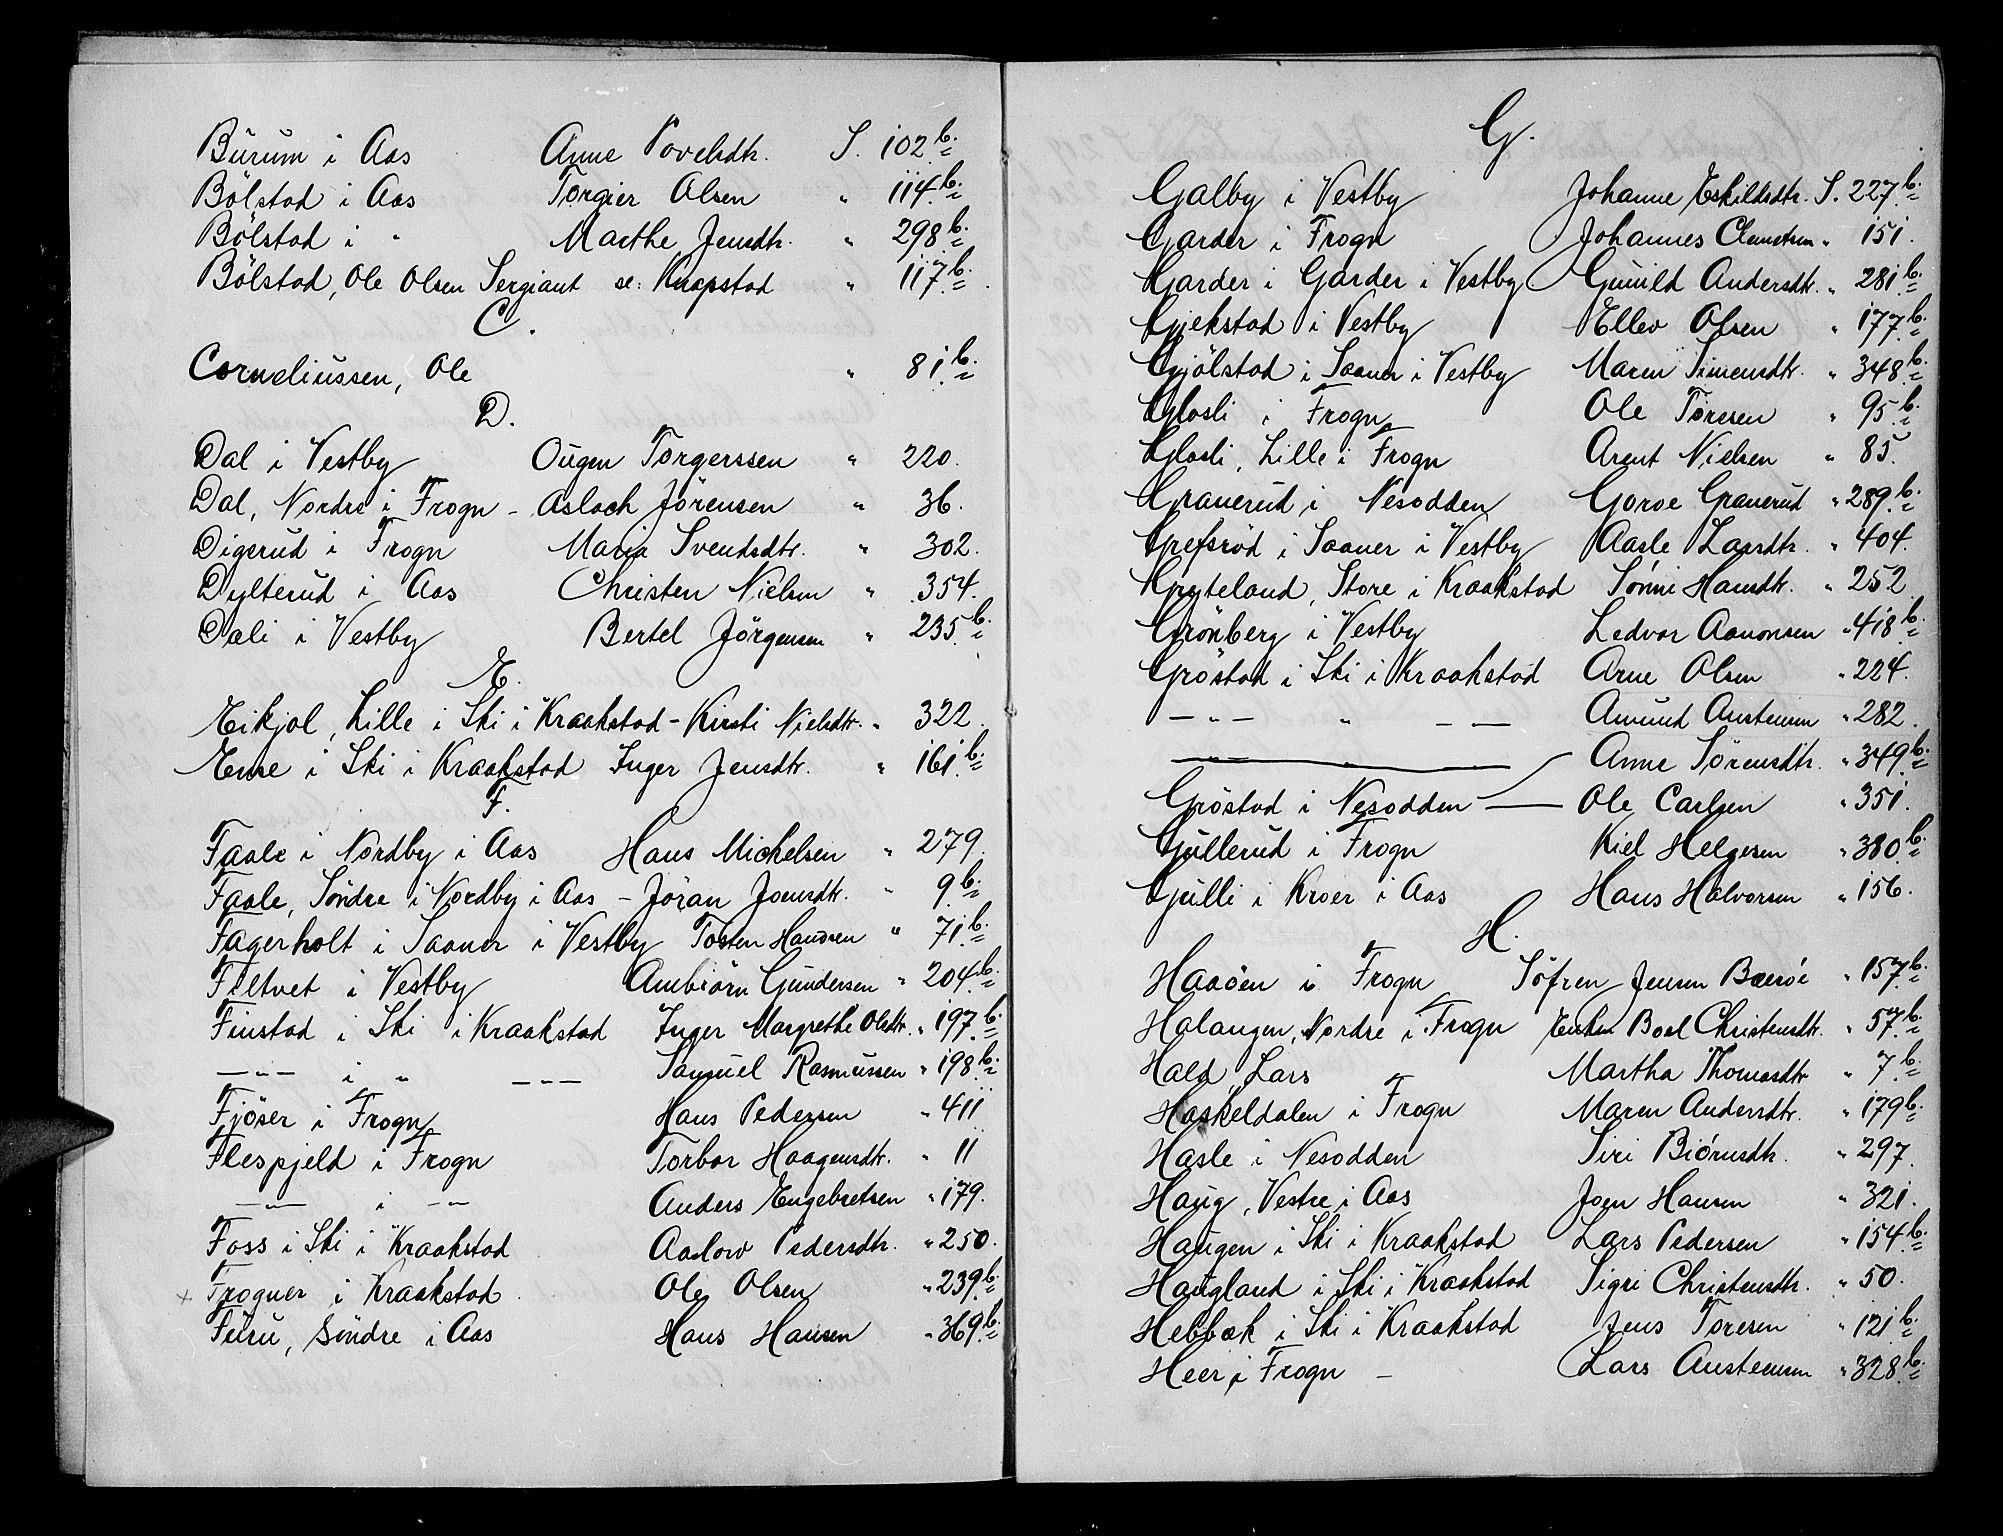 Burum i Aas Anne Povelsdtr. S. 102.b.
Bölstad i Aas Torgier Olsen " 114.b.
Bölstad i " Marthe Jensdtr. " 298 b.
Bölstad, Ole Olsen Sergiant se: Knapstad " 117.b.
C.
Corneliussen, Ole " 81.b.
D.
Dal i Vestby Ougen Torgerssen " 220.
Dal, Nordre i Frogn - Aslach Jörensen " 36.
Digerud i Frogn Maria Svendsdtr. " 302.
Dylterud i Aas Christen Nielsen " 354.
Dæli i Vestby Bertel Jörgensen " 235.b.
E.
Eikjol, Lille i Ski i Kraakstad - Kirsti Nielsdtr. " 322.
Ense i Ski i Kraakstad Inger Jensdtr. " 161.b.
F.
Faale i Nordby i Aas Hans Michelsen " 279.
Faale, Söndre i Nordby i Aas - Jöran Joensdtr. " 9.b.
Fagerholt i Saaner i Vestby Tosten Hansen " 71.b.
Filtvet i Vestby Ambiörn Gundersen " 204.b.
Finstad i Ski i Kraakstad Inger Margrethe Olsdtr. " 197.b.
— " — i " — — — Samuel Rasmussen " 198.b.
Fjöser i Frogn Hans Pedersen " 411
Flespjeld i Frogn Torbor Haagensdtr. " 11
— " — i — " — Anders Engebretsen " 179.
Foss i Ski i Kraakstad Aaslow Pedersdtr. " 250.
x Frogner i Kraakstad Ole Olsen " 239.b.
Furu, Söndre i Aas Hans Hansen " 369.b.
G.
Galby i Vestby Johanne Eskildsdtr. S. 227.b.
Garder i Frogn Johannes Clemetsen " 151.
Garder i Garder i Vestby Gunild Andersdtr. " 281.b.
Gjekstad i Vestby Ellev Olsen " 177.b.
Gjölstad i Saaner i Vestby Maren Simensdtr. " 348.b.
Glosli i Frogn Ole Toresen " 95.b.
Glosli, Lille i Frogn Arent Nielsen " 85.
Granerud i Nesodden Goroe Granerud " 289.b.
Grefsröd i Saaner i Vestby Aasle Larsdtr. " 404.
Gryteland, Store i Kraakstad Sønni Hansdtr. " 252
Grönberg i Vestby Ledvor Aanonsen " 418.b.
Gröstad i Ski i Kraakstad Arne Olsen " 224.
— " — " — — Amund Austensen " 282.
— " — " — Anne Sörensdtr. " 349.b.
Gröstad i Nesodden — Ole Carlsen " 351.
Gullerud i Frogn Kiel Helgesen " 380.b.
Gulli i Kroer i Aas Hans Halvorsen " 156.
H.
Haaöen i Frogn Söfren Jensen Bæröe " 157.b.
Halangen, Nordre i Frogn Enken Boel Christensdtr. " 57.b.
Hald, Lars Martha Thomasdtr " 7.b.
Haskeldalen i Frogn Maren Andersdtr. " 179 b.
Hasle i Nesodden Siri Biörnsdtr. " 297.
Haug, Vestre i Aas Joen Hansen " 321.
Haugen i Ski i Kraakstad Lars Pedersen " 154.b.
Haugland i Ski i Kraakstad Sigri Christensdtr. " 50.
Hebbæk i Ski i Kraakstad Jens Toresen " 121.b.
Heer i Frogn - Lars Austensen " 328.b.